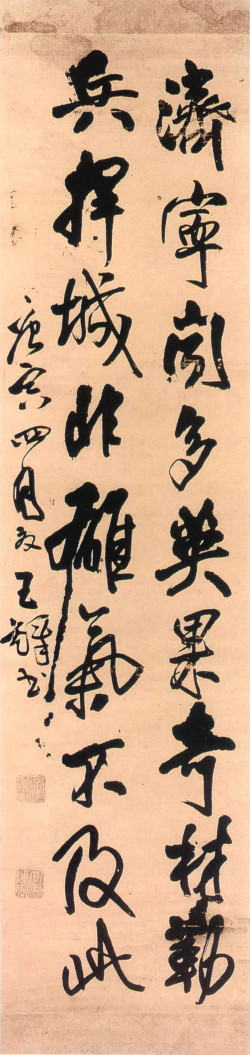 濟寧間多英果奇材勒
兵擇城非雄氣不及此
庚寅四月夜王鐸書